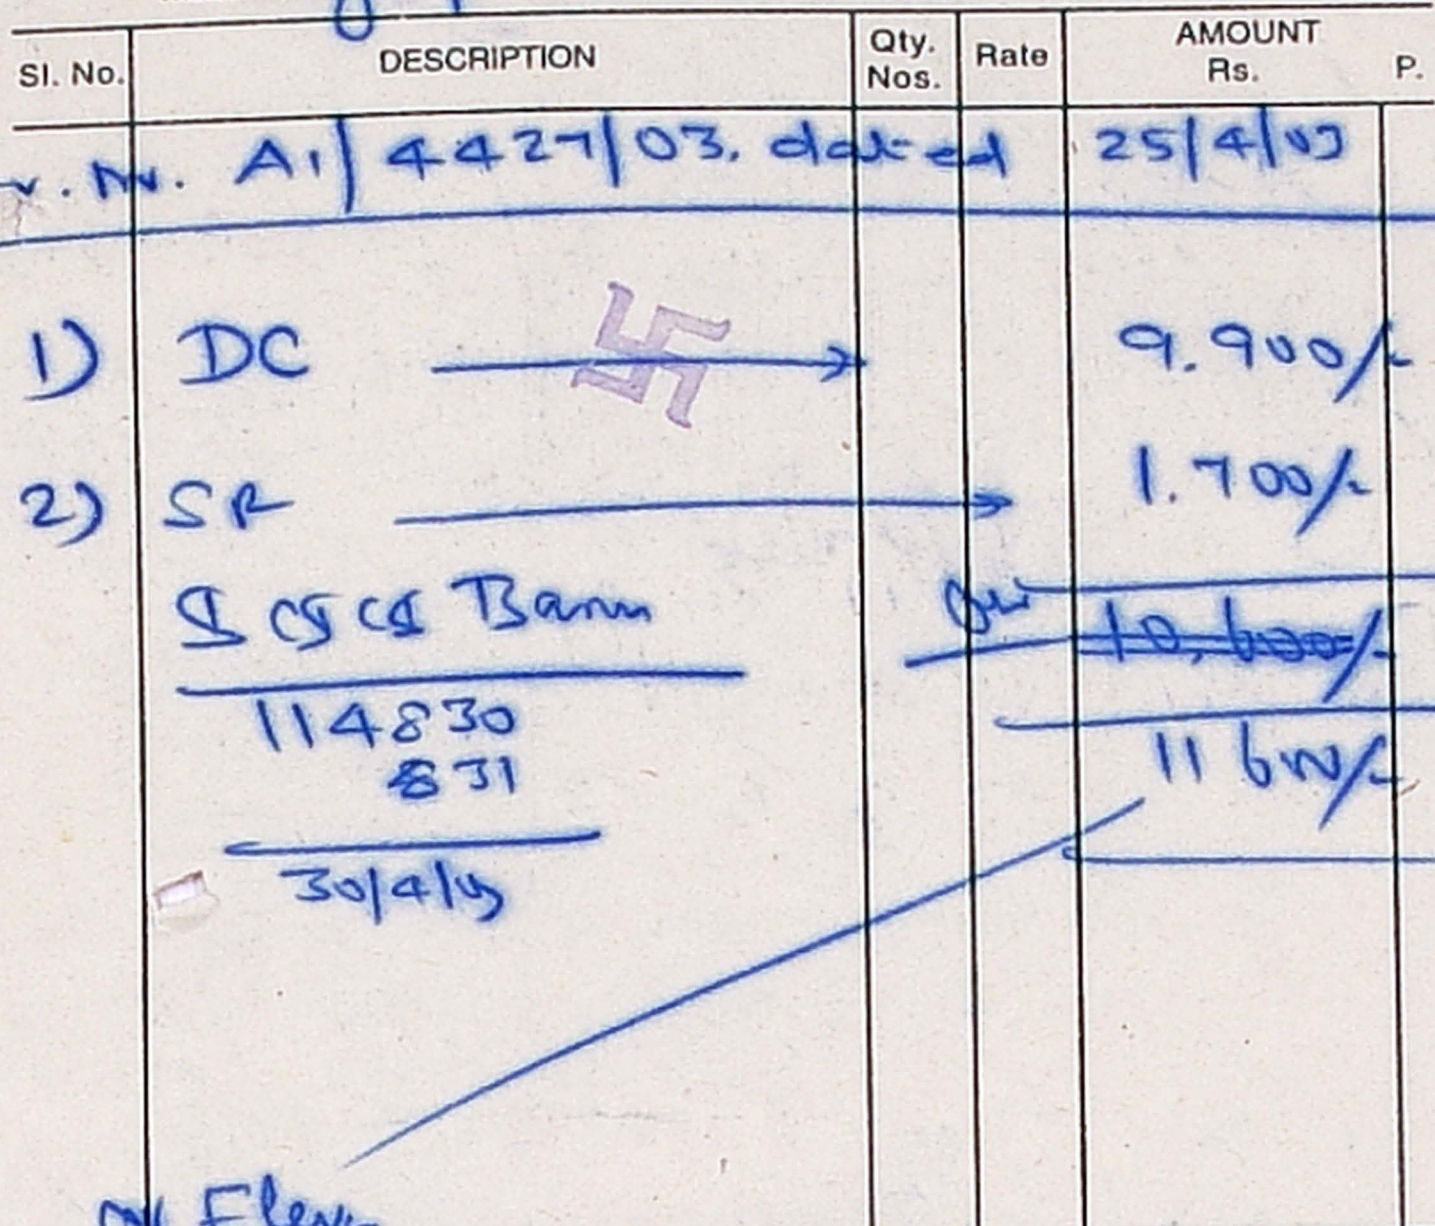 Sl. No. DESCRIPTION Qty. Nos. Rate AMOUNT Rs. P.
A1/4427/03. dated 25/4/03
1) DC 9.900/-
2) SR 1.700/-
10,600/-
114830
831
11600/-
30/4/03